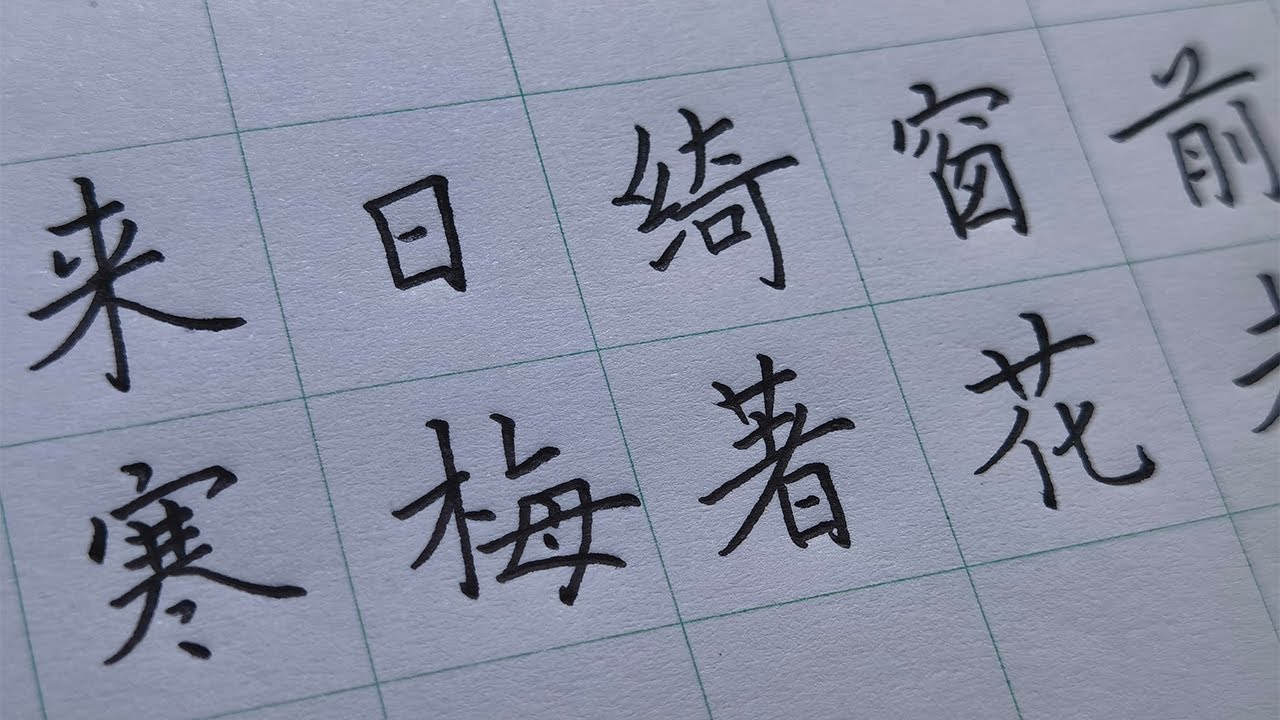 来日绮窗前
寒梅著花